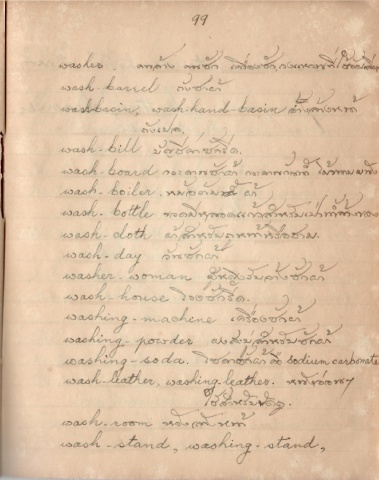 99
washer. คนล้าง คนซัก เครื่องซัก
wash-barrel ถังซักผ้า
washbasin, wash-hand-basin อ่างล้างหน้า
wash-bill บัญชีค่าซักรีด.
wash-board กระดานซักผ้า
wash-boiler. หม้อต้มผ้า
wash-bottle
wash-cloth ผ้าสำหรับถูหน้าหรือชาม.
wash-day วันซักผ้า
washer-woman ผู้หญิงรับจ้างซักผ้า
wash-house โรงซักรีด.
washing-machene เครื่องซักผ้า
washing-powder ผงสบู่สำหรับซักผ้า
washing-soda. โซดาซักผ้า คือ sodium carbonate
wash-leather, washing-leather. หนังอ่อนๆ
ใช้สำหรับขัดถู.
wash-room ห้องล้างหน้า
wash-stand, washing-stand,